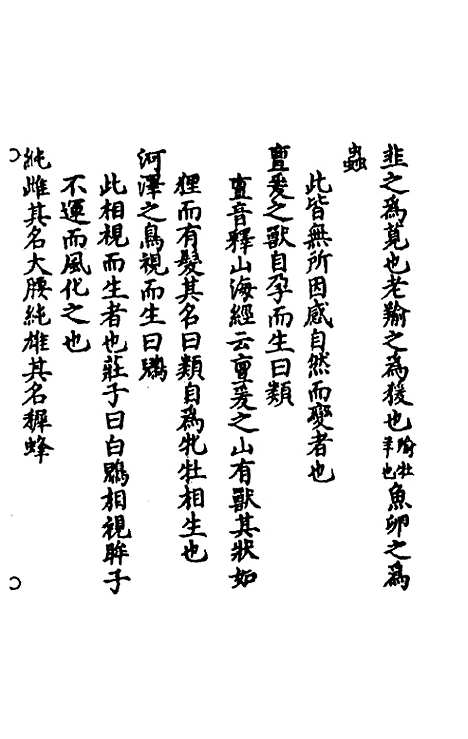 韭之爲莧也老羭之爲猨也羭牡羊也魚卵之爲
蟲
此皆無所因感自然而變者也
亶爰之獸自孕而生曰類
亶音蟬山海經云亶爰之山有獸其狀如
狸而有髮其名曰類自爲牝牡相生也
河澤之鳥視而生曰鶂
此相視而生者也莊子曰白鶂相視眸子
不運而風化之也
純雌其名大腰純雄其名穉蜂